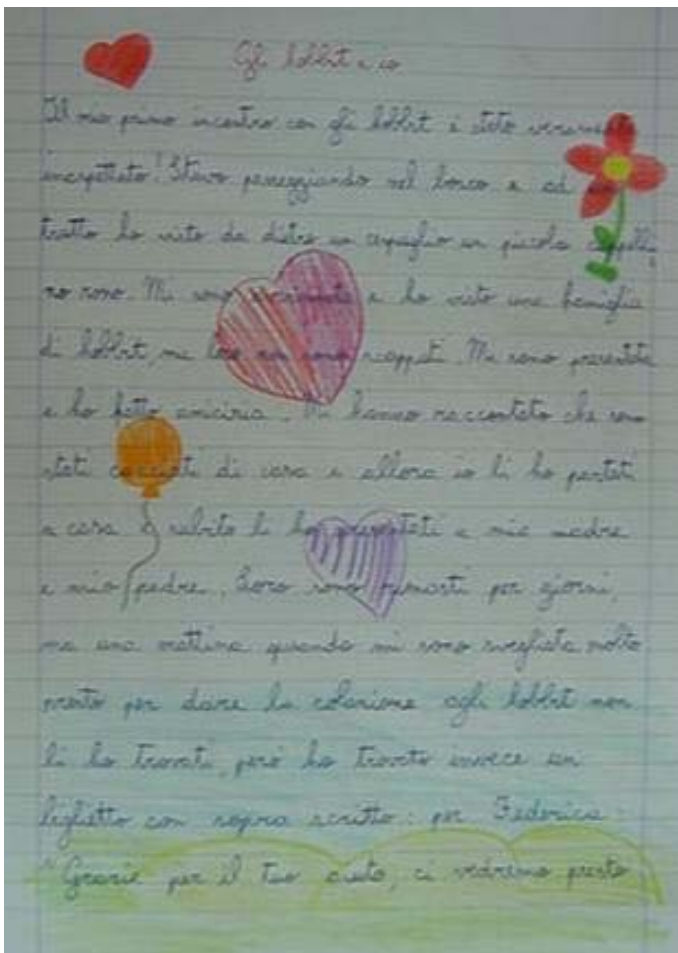 Gli hobbit e io
Il mio primo incontro con gli hobbit è stato veramente
inaspettato! Stavo passeggiando nel bosco e ad un
tratto ho visto da dietro un cespuglio un piccolo cappelli,
no rosso. Mi sono avvicinata e ho visto una famiglia
di hobbit, ma loro non sono scappati. Mi sono presentata
e ho fatto amicizia. Mi hanno raccontato che sono
stati cacciati di casa e allora io li ho portati
a casa e subito li ho presentati a mia madre
e mio padre. Loro sono rimasti per giorni,
ma una mattina quando mi sono svegliata molto
presto per dare la colazione agli hobbit non
li ho trovati, però ho trovato invece un
biglietto con sopra scritto: per Federica:
"Grazie per il tuo aiuto, ci vedremo presto